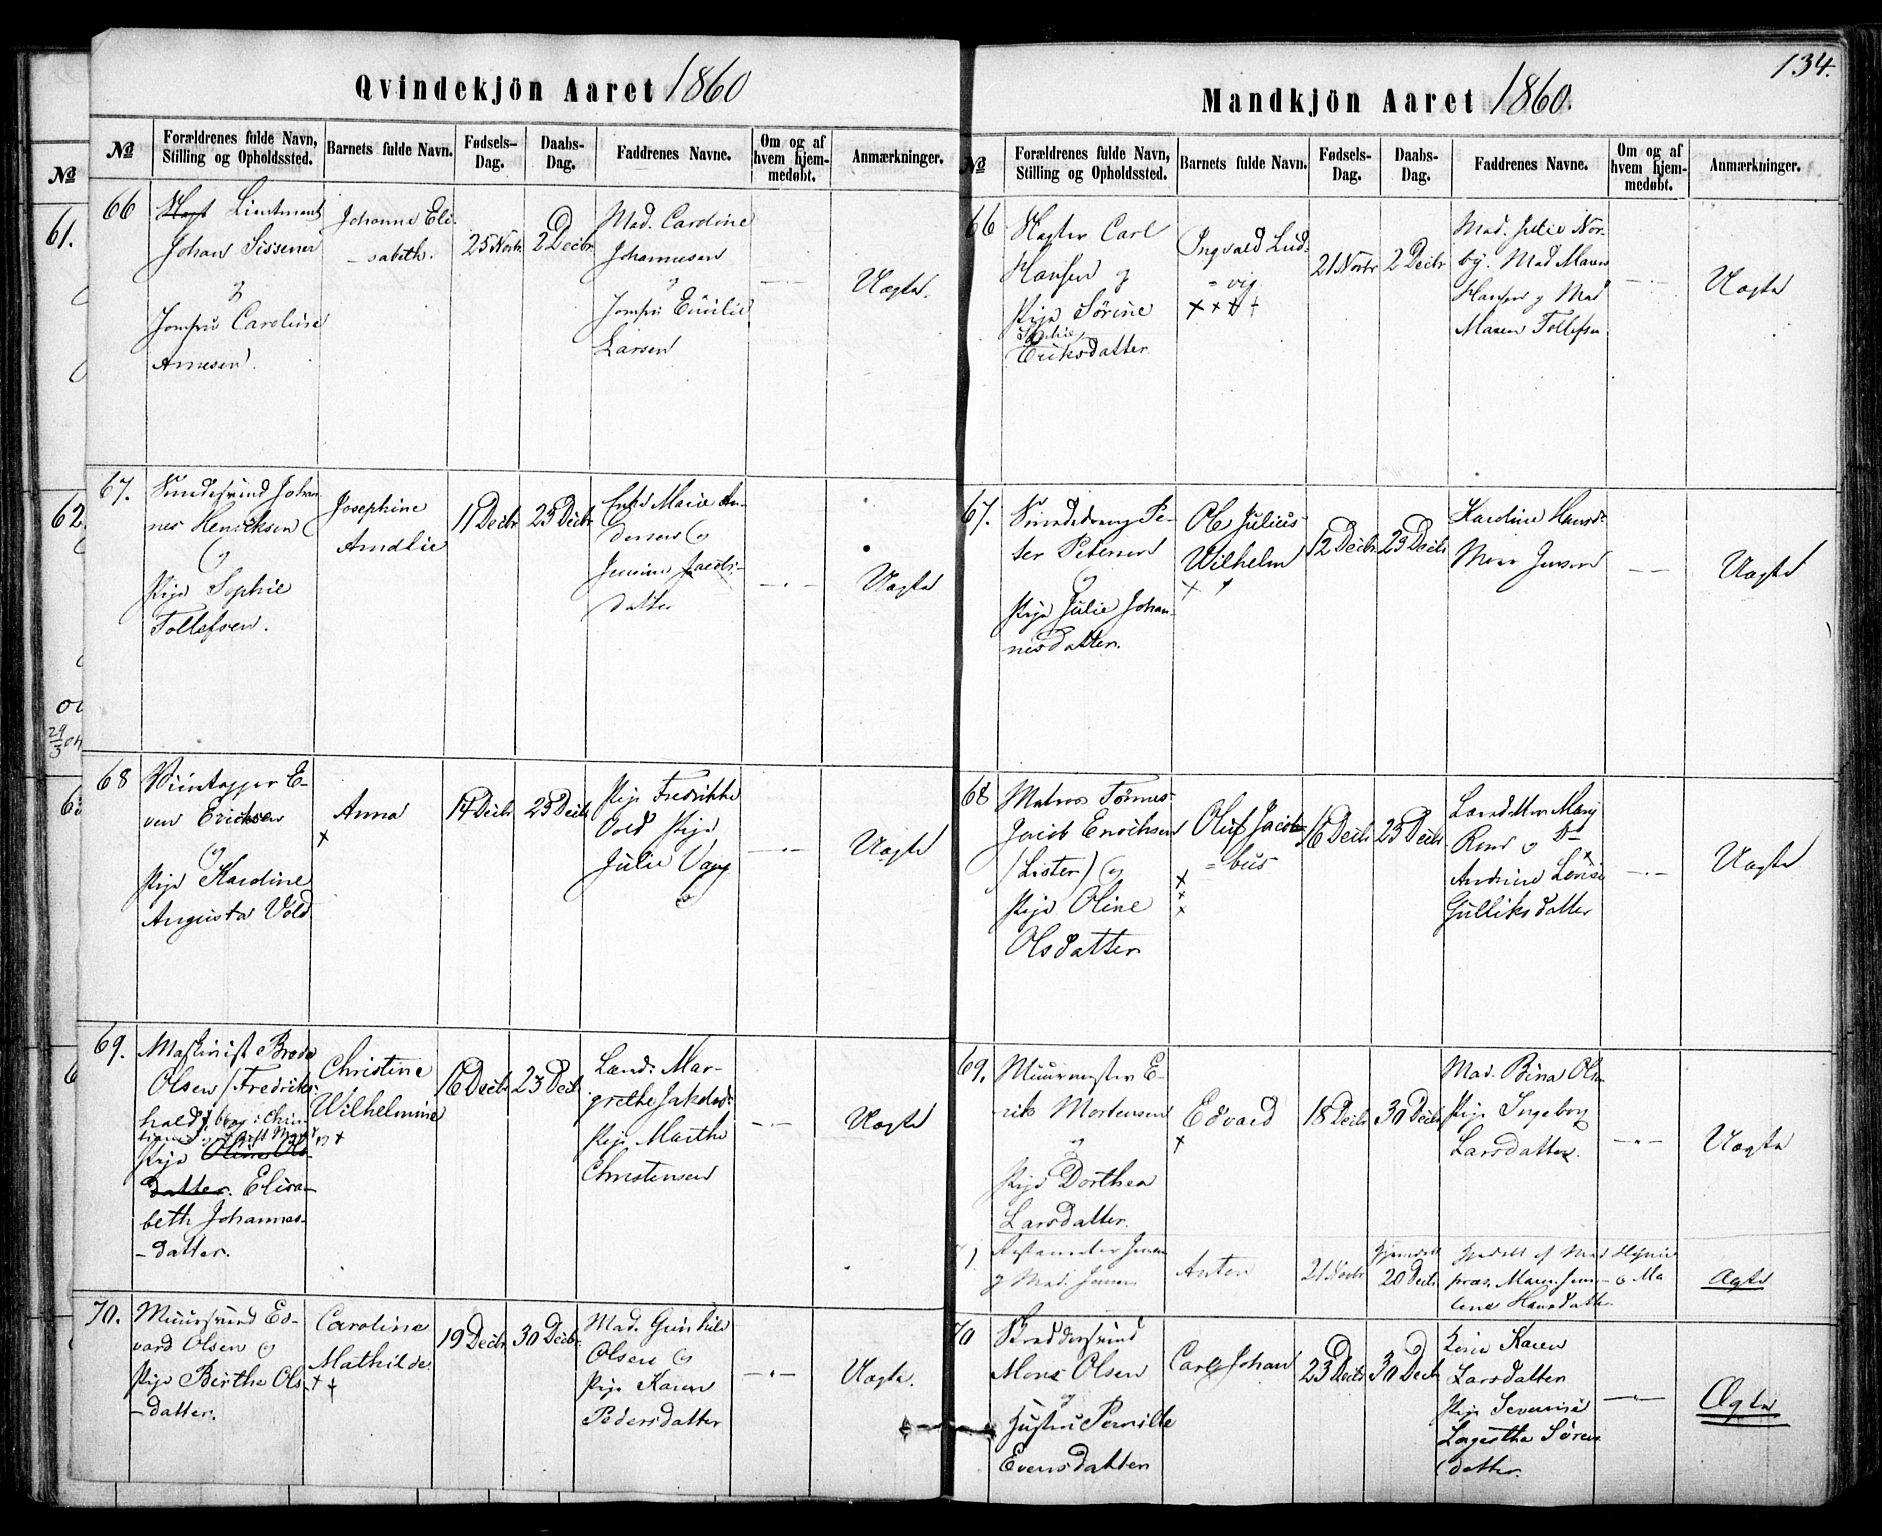 134.
Qvindekjön Aaret 1860
№
Forældrenes fulde Navn, Stilling og Opholdssted.
Barnets fulde Navn.
Fødsels-Dag.
Daabs-Dag.
Faddrenes Navne.
Om og af hvem hjem-medøbt.
Anmærkninger.
66
Lieutnant
Johan Sissener
og
Jomfru Caroline
Arnesen.
Johanne Eli-
sabeth.
25 Novbr
2 Decbr
Mad. Cardine
Johannesen
og
Jomfru Emilie
Larsen
Uægte.
67.
Smedesvend Johan-
nes Henriksen
og
Pige Sophie
Tollefsen.
Josephine
Amalie
11 Decbr
23 Decbr
Enke Marie An-
dersen og
Jensine Jacobs-
datter
Uægte
68
Viintapper E-
ven Ericksen
og
Pige Kardine
Augusta Vold
Anna
14 Decbr
23 Decbr
Pige Fredrikke
Vold Pige
Julie Vang
Uægte
69.
Maskinist Brede
Olsen (Fredriks-
hald)
Pige Oline Ols-
datter. Elisa-
beth Johannes-
datter.
Christine
Wilhelmine
16 Decbr
23 Decb
Lands. Mar-
grethe Jakobsd.
Pige Marthe
Christensen
Uægte
70.
Muursvend Ed-
vard Olsen og
Pige Birthe Ols-
datter.
Caroline
Mathilde
19 Decbr
30 Decbr.
Mad. Gunhild
Olsen og
Pige Karen
Pedersdatter
Uægte.
Mandkjön Aaret 1860.
№
Forældrenes fulde Navn, Stilling og Opholdssted.
Barnets fulde Navn.
Fødsels-Dag.
Daabs-Dag.
Faddrenes Navne.
Om og af hvem hjem-medøbt.
Anmærkninger.
66
Carl
Hansen og
Pige Sørine
Sophie
Eriksdatter
Ingvald Lud-
vig
21 Novbr
2 Decbr
Mad. Julie Nor-
by. Mad Maren
Hansen og Mad
Maren Tollefsen
Uægte
67.
Smededreng Pe-
ter Petersen
og
Pige Julie Johan-
nesdatter.
Ole Julius
Wilhelm
12 Decbr
23 Decbr
Kardine Hansd.
Jensen
Uægte
68
Matros Tönnes
Jacob Enochsen
(Lister) og
Pige Oline
Olsdatter
Oluf Jaco-
bus
16 Decbr
23 Decbr
Mary
og Do
Andrine Lovise
Gulliksdatter
Uægte
69.
Muurmester E-
rik Mortensen
og
Pige Dorthea
Larsdatter.
Edvard
18 Decbr
30 Decbr
Mad. Bina Olsen
Pige Ingeborg
Larsdatter.
Uægte
Jensen
og Mad. Jensen
Anton
21 Novbr
Hjemdøbt
20 Decbr
Hjedøbt af Mad
præs. Maren Jensen og Ma-
lene Hansdatter
Ægte
70
Skreddersvend
Mons Olsen
og
Hustru Pernille
Evensdatter
Carl Johan
23 Decbr
30 Decb
Karen
Larsdatter
Pige Severine
Sören-
datter.
Ægte
61.
62.